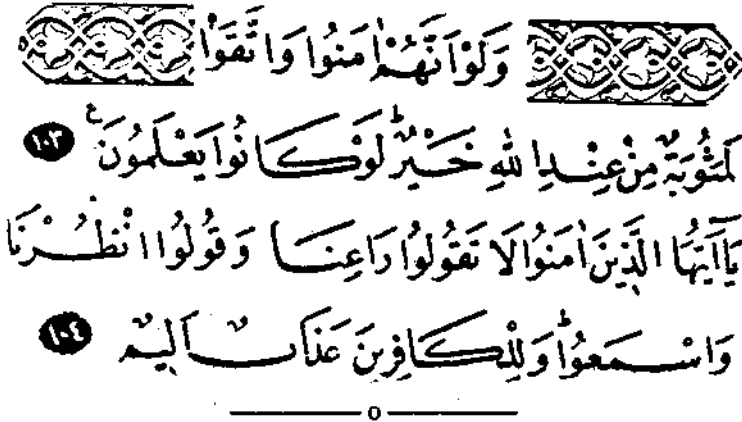 وَلَوْ اَنَّهُمْ اٰمَنُوا وَاتَّقَوْا
لَمَثُوبَةٌ مِنْ عِنْدِ اللّٰهِ خَيْرٌۜ لَوْ كَانُوا يَعْلَمُونَ ۟ ١٠٣
يَٓا اَيُّهَا الَّذٖينَ اٰمَنُوا لَا تَقُولُوا رَاعِنَا وَقُولُوا انْظُرْنَا
وَاسْمَعُواۜ وَلِلْكَافِرٖينَ عَذَابٌ اَلٖيمٌ ١٠٤